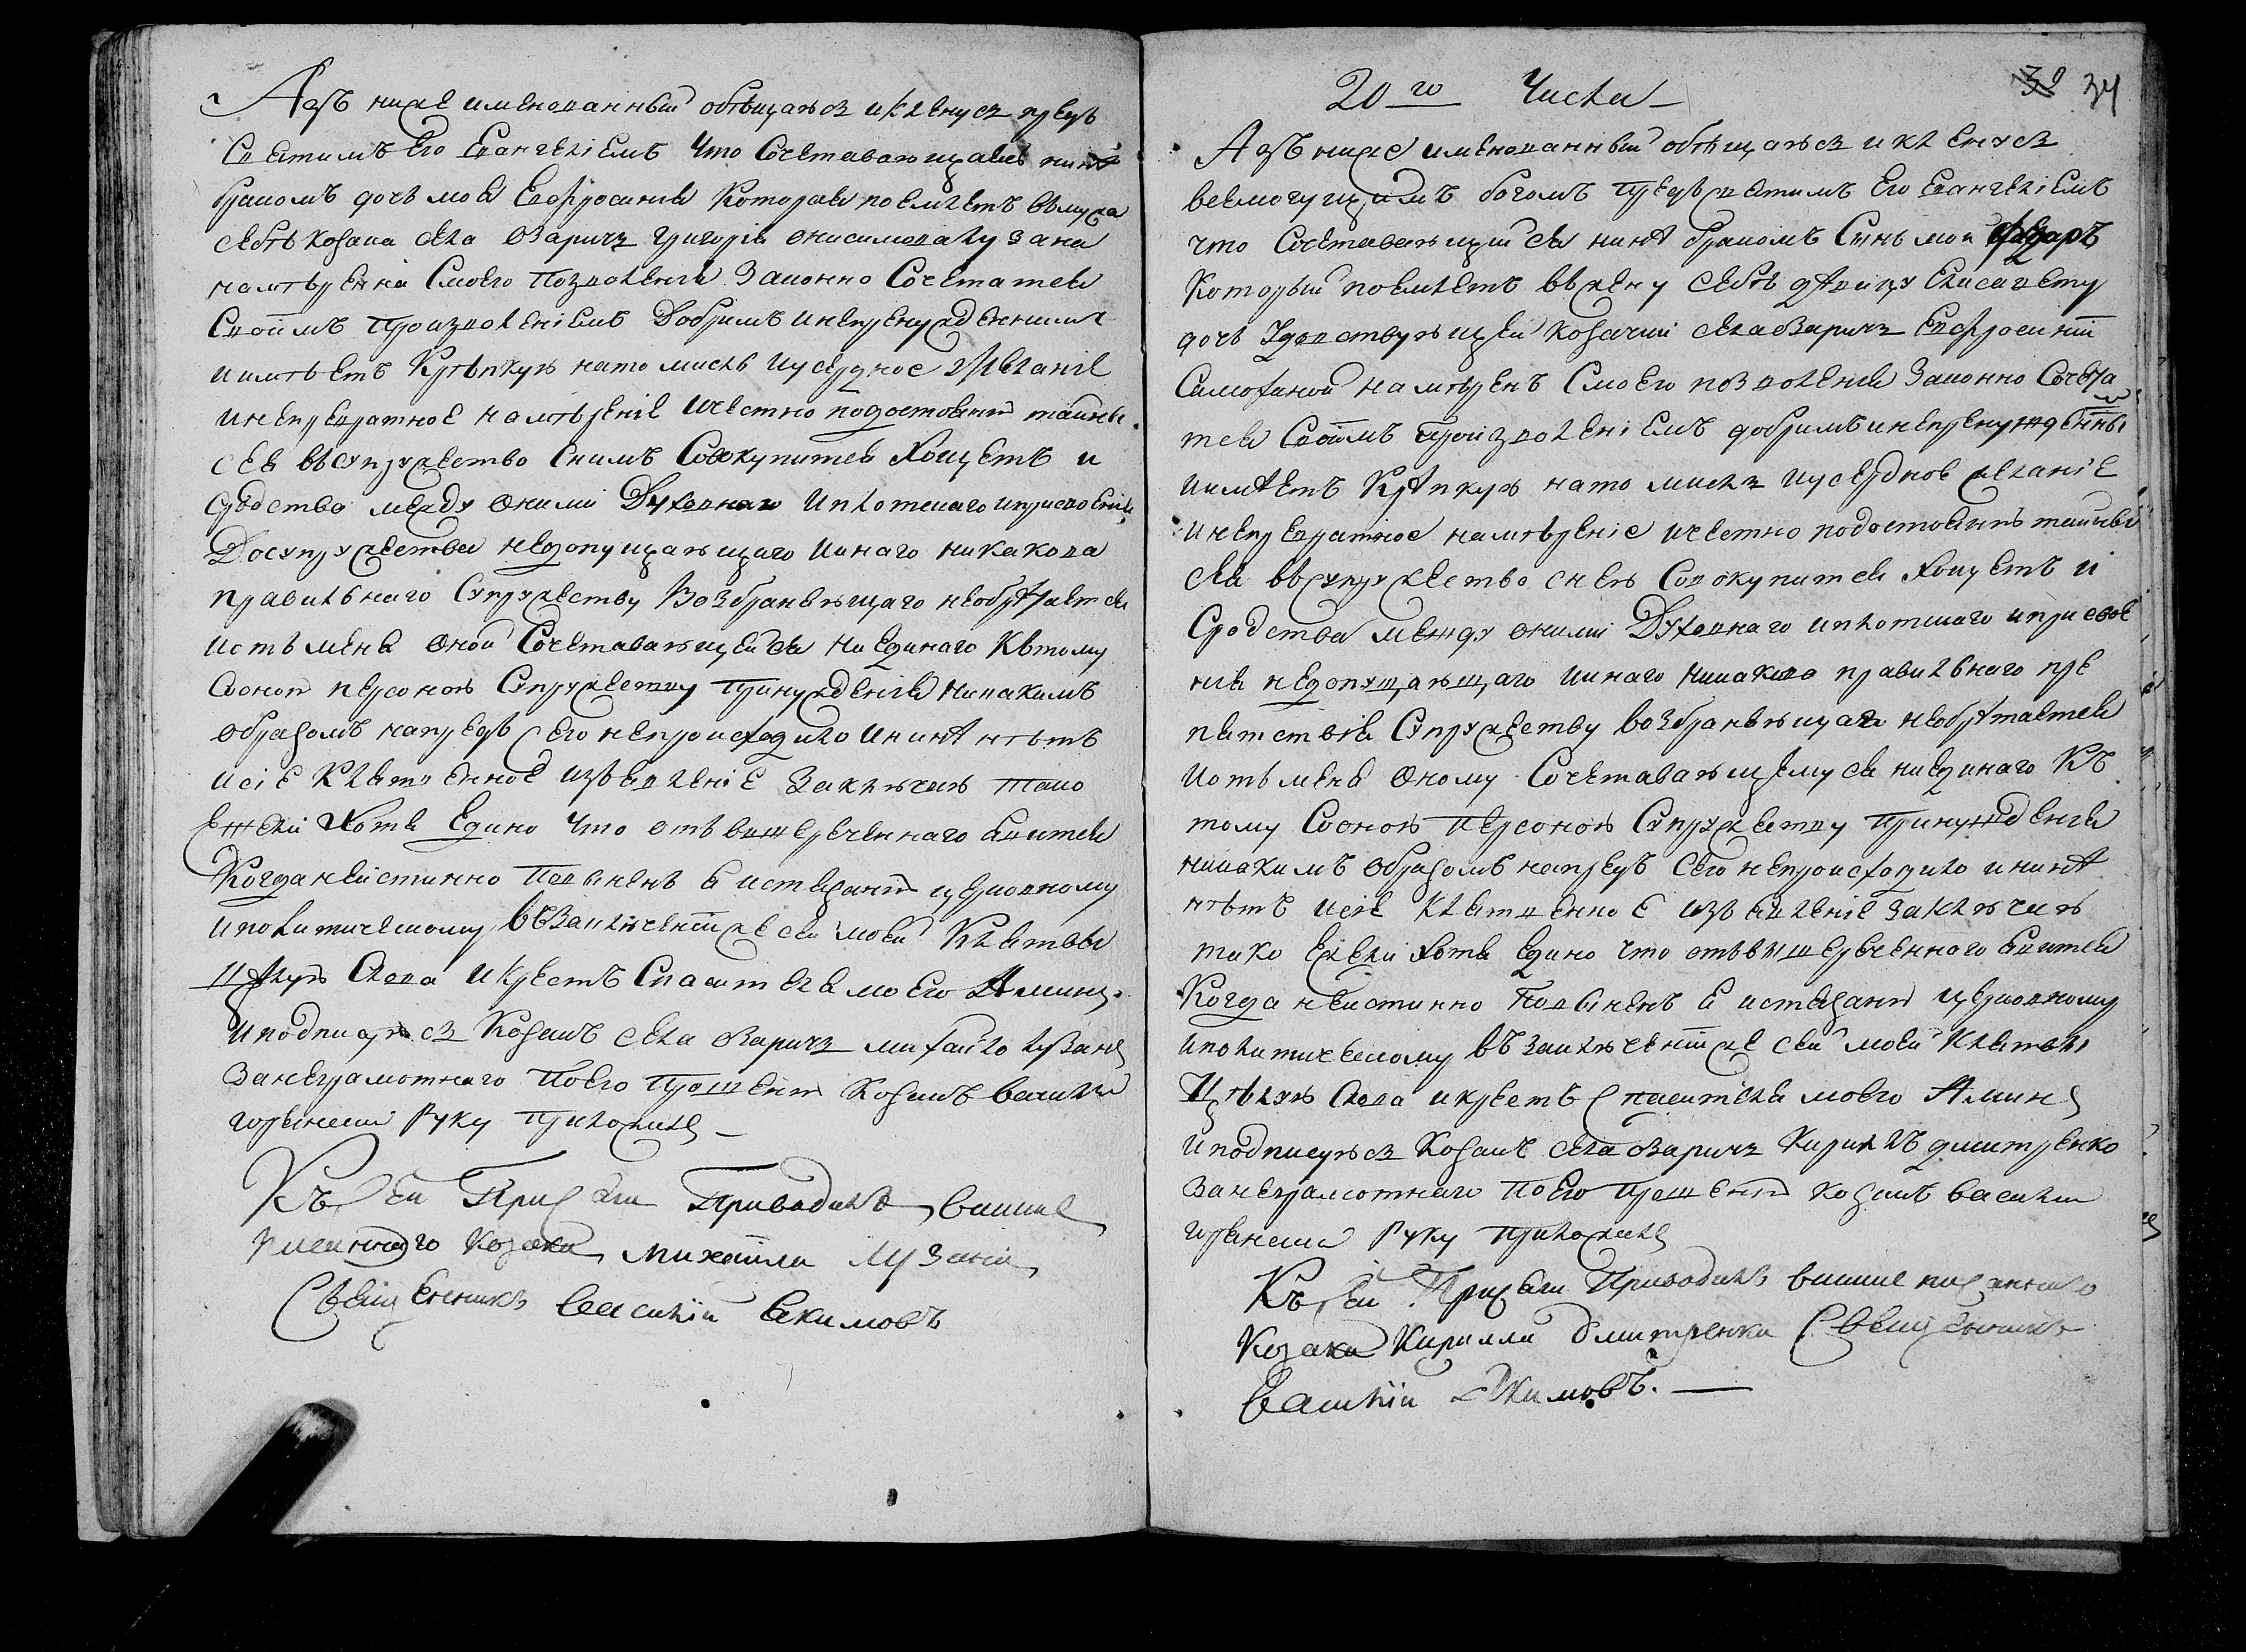 Азъ ниже именованный обѣщаюся и кленуся предъ
Святимъ его Евангеліемъ что Сочетавающаясь нинѣ
бракомъ дочь моя Евфросинія Которая поемлетъ въ мужа
себѣ козака села Озаричъ Григорія Онисимова Лузана
намѣренна Смоего позволенія Законно Сочетатся
Своимъ произволеніемъ Добримъ и непренужденнимъ
и имѣетъ Крѣпкую на то мисль и усердное желаніе
и непревратное намѣреніе и честно по достоянію тайны
сея въ супружествоСнимъ Совокупится хощетъ и
Сродства между оними Духовнаго и плотскаго и присвоенія
До супружества недопущающаго и инаго никакова
правильнаго Супружеству Возбраняющаго необрѣтается
и отъ мене оной Сочетавающейся ни единаго Къ тому
Сооною персоною Супружеству принужденія никакимъ
образомъ напредъ сего непроисходило и нинѣ нѣтъ
и сіе Клятвенное изъявленіе Заключаю тако
Ежели хотя Едино что отъ вишеречennаго явится
Когда неистинно Повиненъ я истязанію церковному
и политическому въ Заключеніи же сей моей Клятвы
Цѣлую Слова и Крестъ Спасителя моего Аминь.
и подписуюся Козакъ села Озаричъ михайло лузанъ
За неграмотнаго По его прошенію Козакъ василій
руку приложилъ
Къ сей Присяги Приводилъ више
писанного козака михаила лузана
Священникъ василій Екимовъ
20го Числа 32 34
Азъ ниже именованный обѣщаюся и кленуся
всемогущимъ богомъ предъ святимъ его Евангеліемъ
что Сочетавающийся нинѣ бракомъ Синъ мой
Который поемлетъ въ жену себѣ дѣвицу Елисавету
дочь Удовствующей козачки села Озаричъ Евфросиніи
намѣренъ Смоего позволенія Законно Сочета
тся Своимъ произволеніемъ добримъ и непренужденны
и имѣетъ Крѣпкую на то мисль и усердное желаніе
и непревратное намѣреніе и честно по достоянію тайны
сея въ супружество снею Совокупится хощетъ и
Сродства между оними Духовнаго и плотскаго и присвое
нія недопущающаго и инаго никакова правильнаго пре
пятствія Супружеству возбраняющаго необрѣтается
и отъ мене оному Сочетавающемуся ни единаго Къ
тому Сооною персоною Супружеству принужденія
никакимъ образомъ напредъ сего непроисходило и нинѣ
нѣтъ и сіе клятвенное изъявленіе заключаю
тако Ежели хотя Едино что отъ вишеречennого явится
Когда неистинно Повиненъ я истязанію церковному
и политическому въ заключеніи же сей моей клятвы
Цѣлую Слова и крестъ спасителя моего Аминь
и подписуюся Козакъ села Озаричъ Кирилъ дмитренко
За неграмотнаго По его прошенію козакъ василій
руку приложилъ
Къ сей Присяги Приводилъ више писанного
Козака Кирилла дмитренка Священникъ
василій Екимовъ.